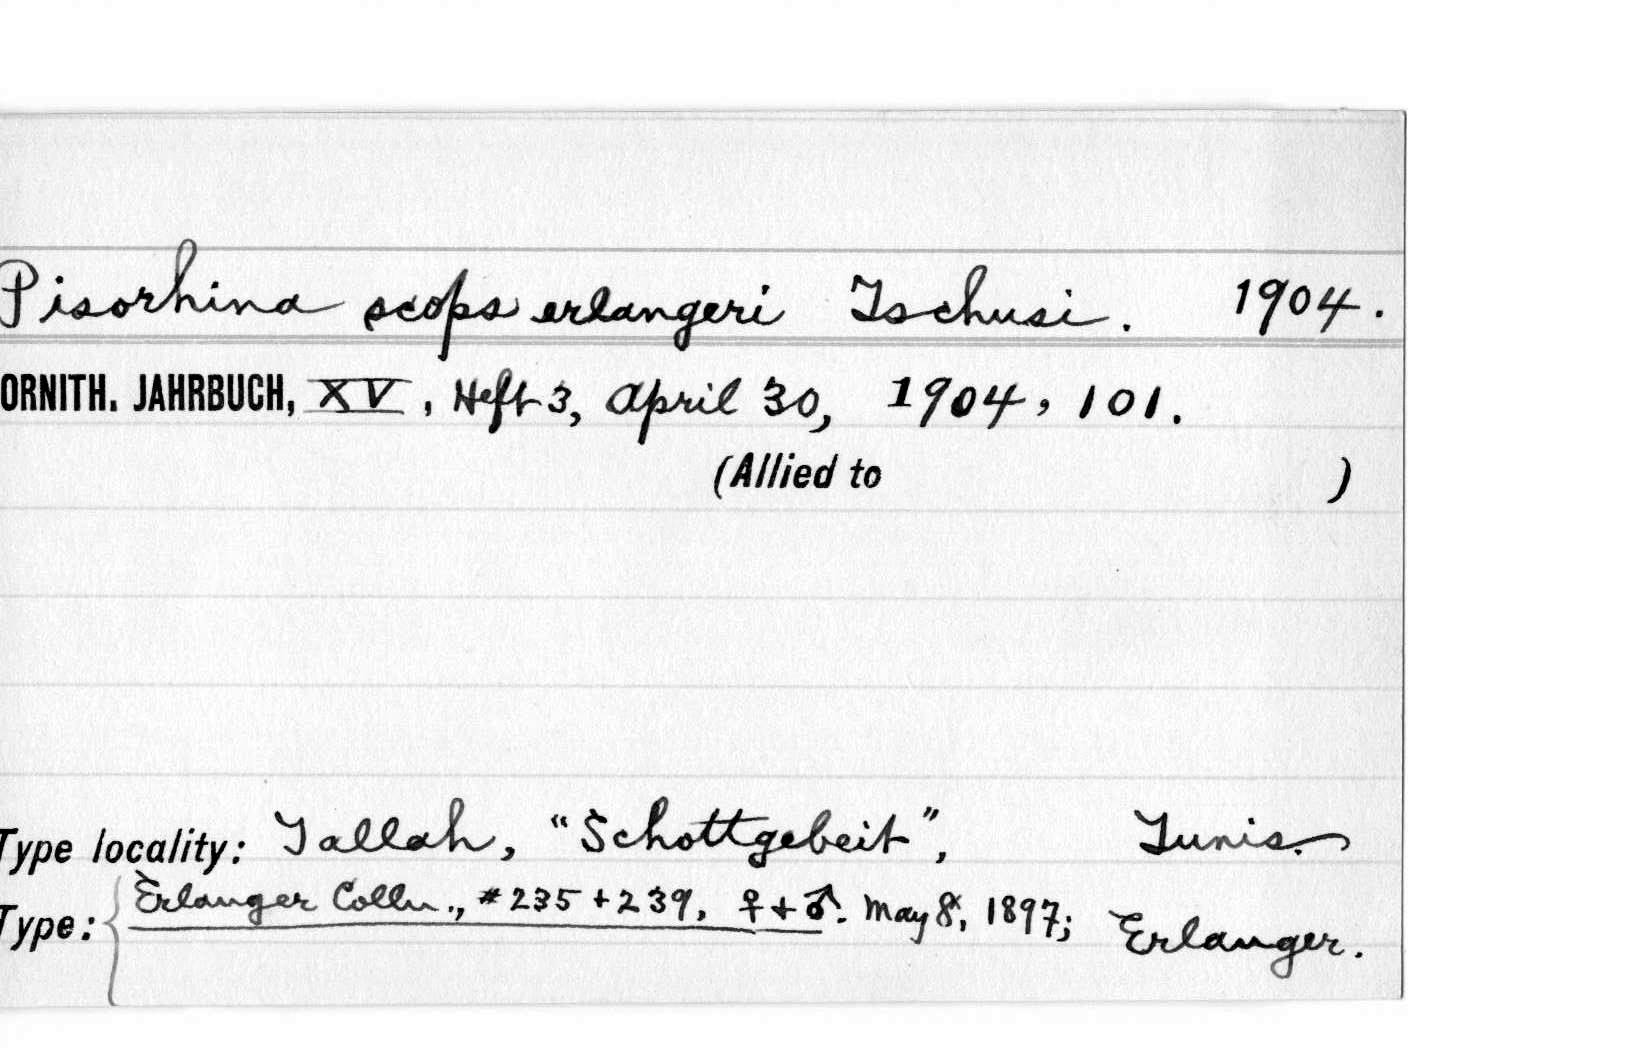 Pisorhina scops erlangeri Tschusi. 1904.
ORNITH. JAHRBUCH, XV, Heft 3, April 30, 1904, 101.
(Allied to )
Type locality: Tallah, "Schottgebeit", Tunis.
Type: Erlanger Colln., #235 + 239, ♀ + ♂. May 8, 1897; Erlanger.